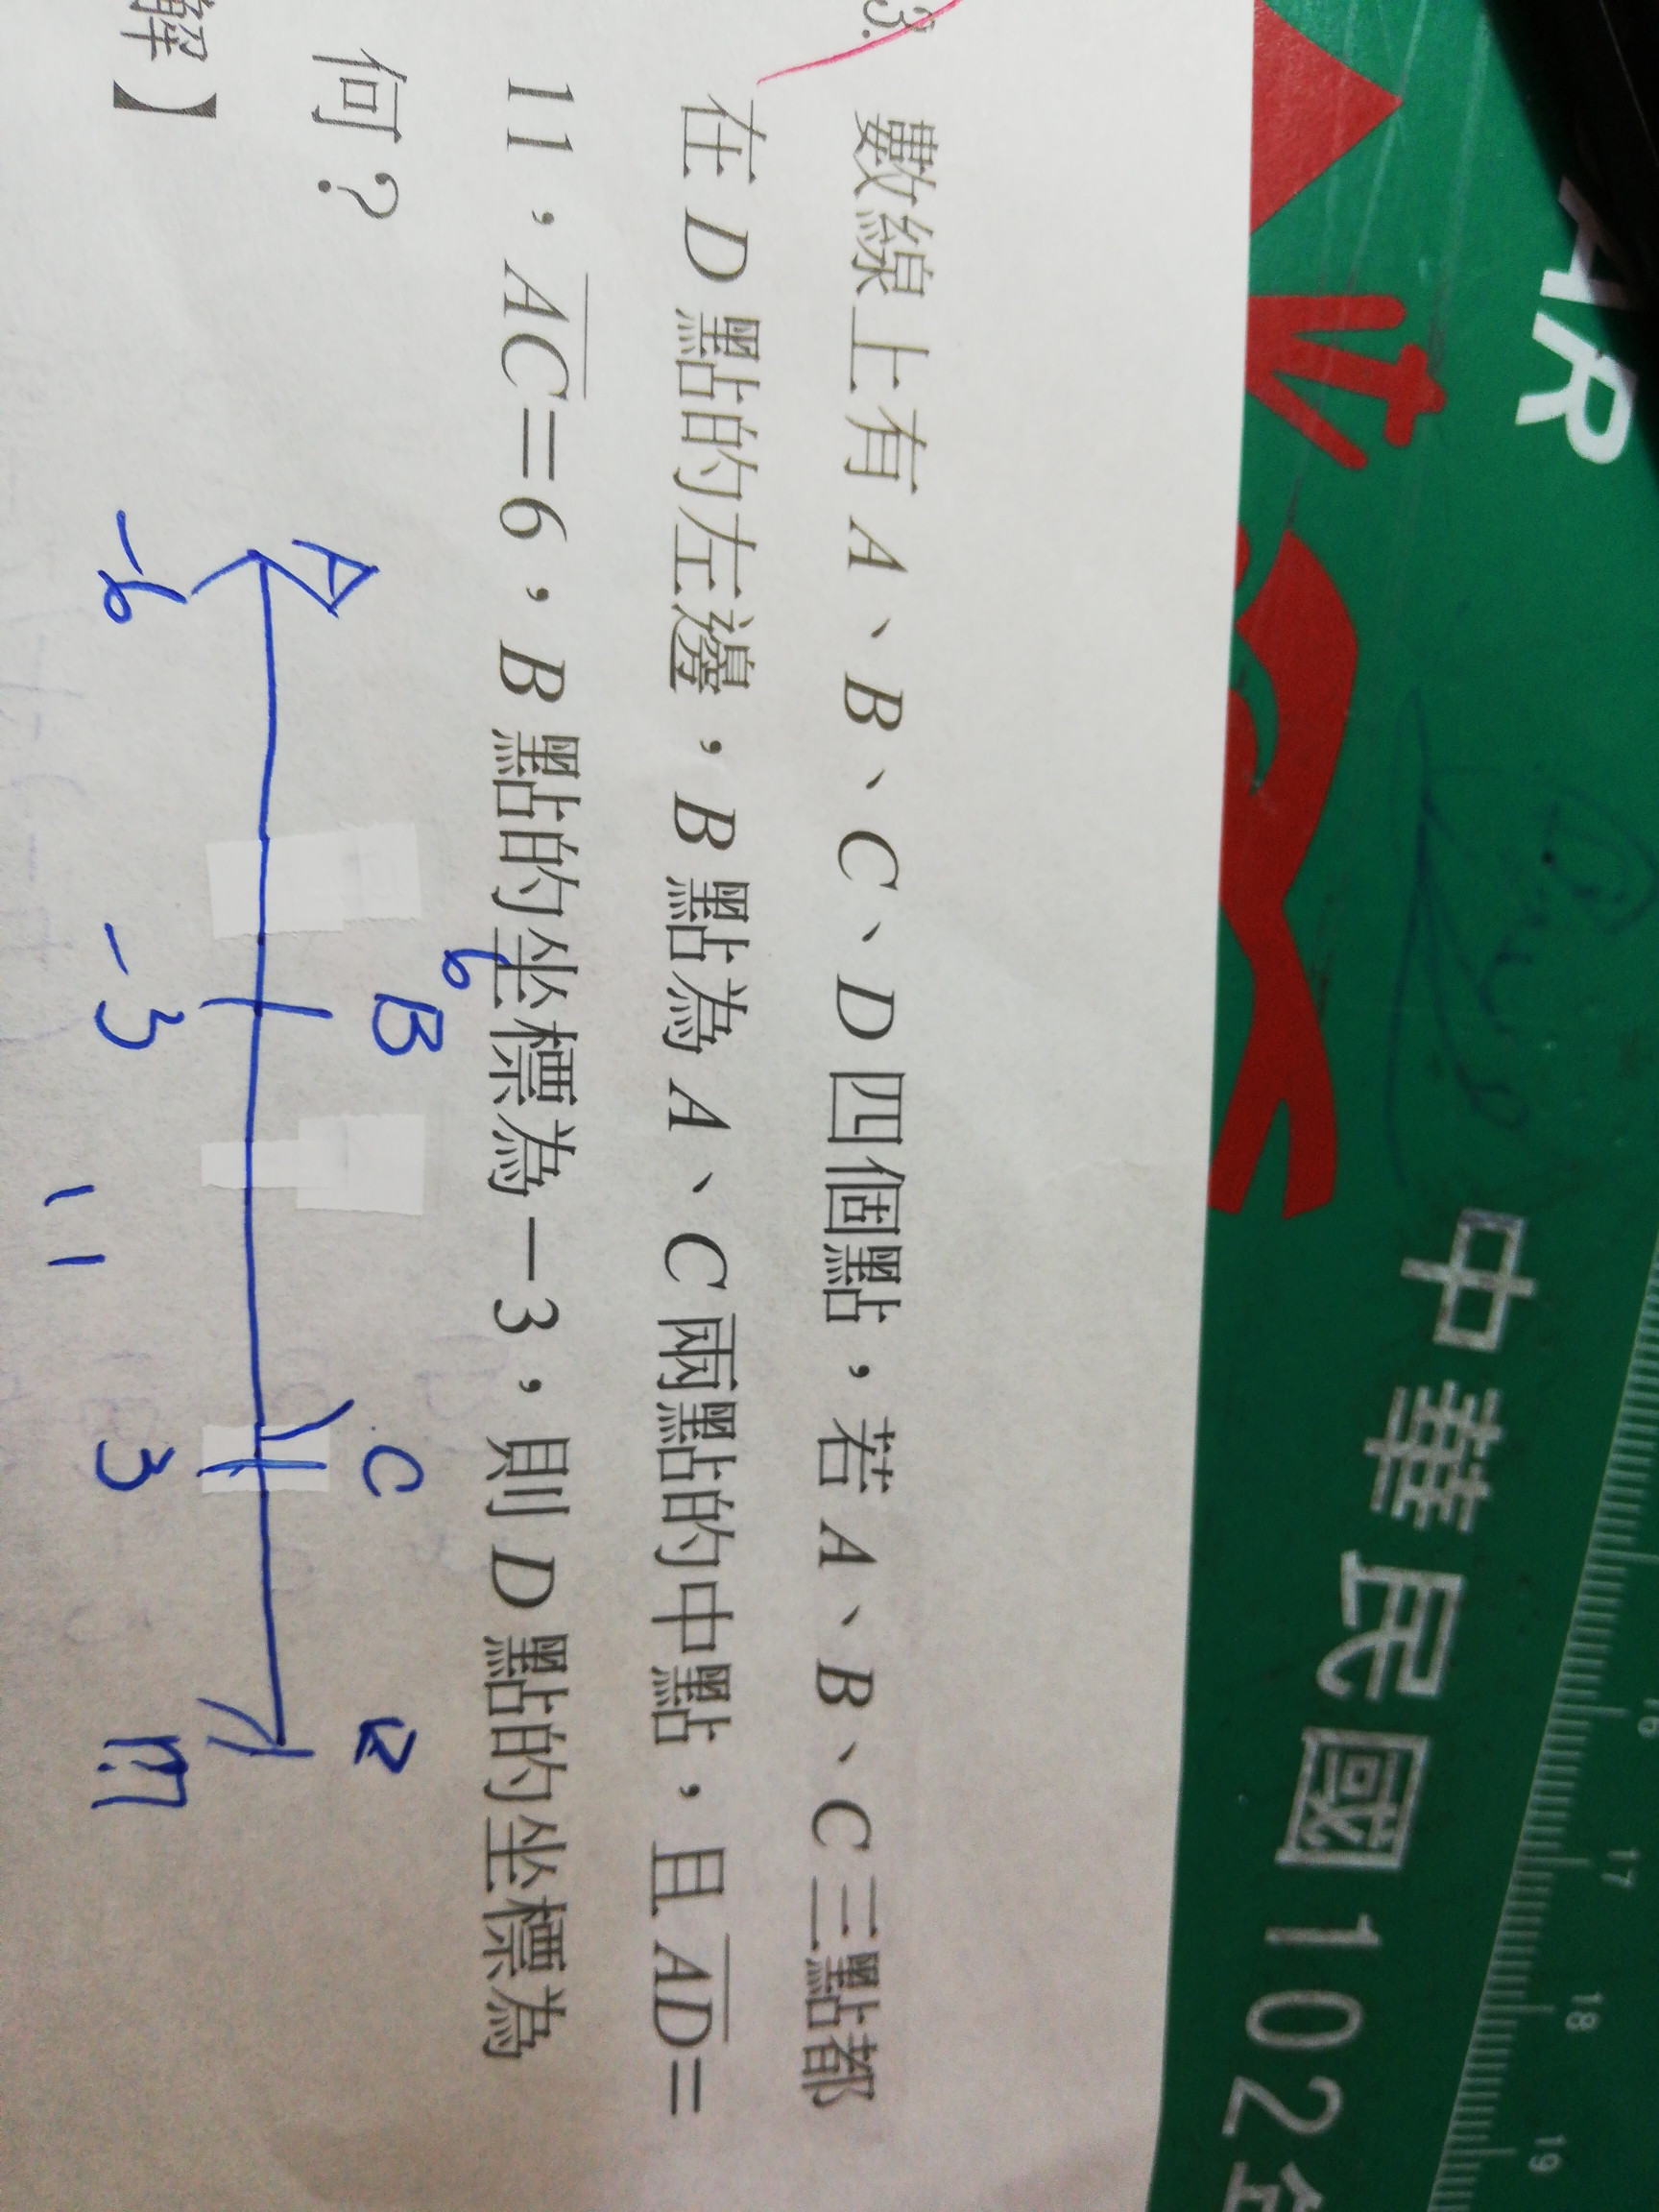 3.
數線上有 A、B、C、D 四個點，若 A、B、C 三點都
在 D 點的左邊，B 點為 A、C 兩點的中點，且 AD=
11，AC=6，B 點的坐標為－3，則 D 點的坐標為
何？
解】
A
6
B
C
-6
-3
3
11
HR
中華民國102年
17
18
19